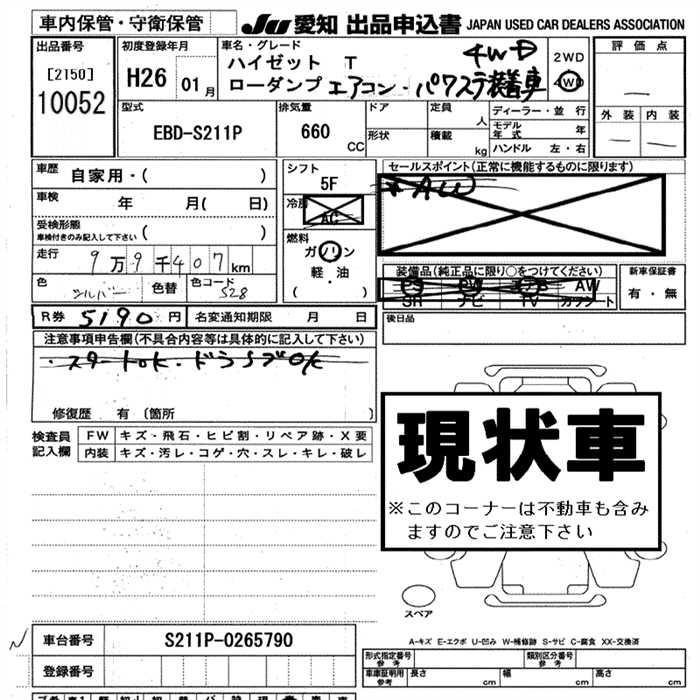 車内保管・守衛保管
JU 愛知 出品申込書 JAPAN USED CAR DEALERS ASSOCIATION
出品番号
[2150]
10052
初度登録年月
H26 01月
車名・グレード
ハイゼット T 4WD
ローダンプ エアコン・パワステ装着車
2WD
4WD
評価点
外装 内装
型式
EBD-S211P
排気量
660 CC
ドア
形状
定員 人
積載 kg
ディーラー・並行
モデル年式 年
ハンドル 左・右
車歴
自家用・( )
車検 年 月( 日)
受検形態
車検付きのみ記入して下さい ( )
走行 9万9千407km
色 シルバー 色替 色コード S28
シフト
5F
冷房
AC
燃料
ガソリン
軽・油
( )
セールスポイント(正常に機能するものに限ります)
AW
装備品(純正品に限り○をつけてください)
PS PW エアB AW
SR ナビ TV カワシート
新車保証書
有・無
R券 5190円 名変通知期限 月 日
後日品
注意事項申告欄(不具合内容等は具体的に記入して下さい)
・スタートok・ドラシブOK
修復歴 有 (箇所 )
検査員記入欄
FW キズ・飛石・ヒビ割・リペア跡・X要
内装 キズ・汚レ・コゲ・穴・スレ・キレ・破レ
現状車
※このコーナーは不動車も含みますのでご注意下さい
スペア
A-キズ E-エクボ U-凹み W-補修跡 S-サビ C-腐食 XX-交換済
車台番号 S211P-0265790
登録番号
形式指定番号 参考
類別区分番号 参考
車庫証明用 参考 長さ cm 幅 cm 高さ cm